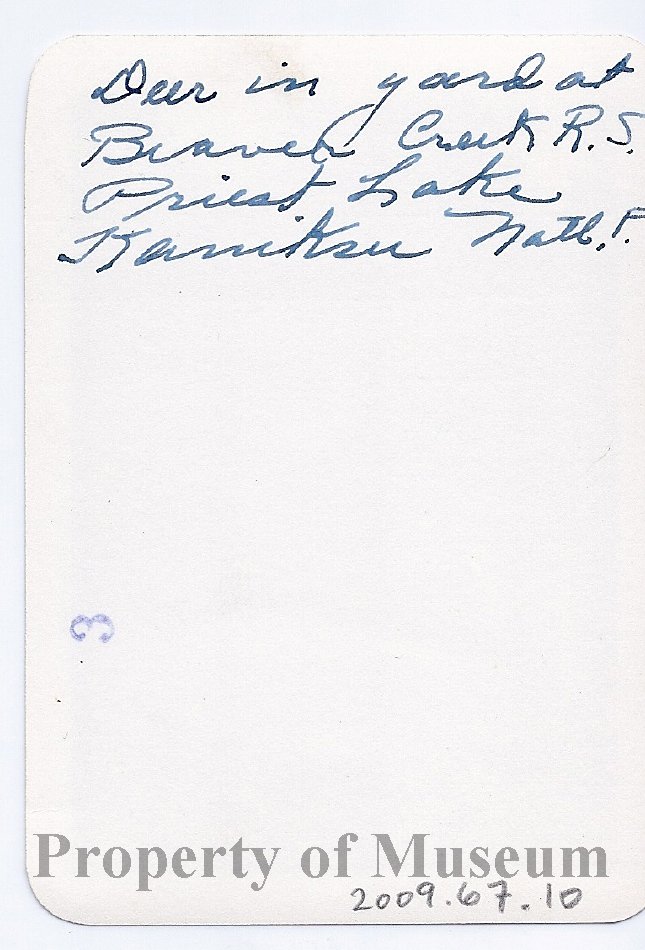 Deer in yard at
Beaver Creek R.S.
Priest Lake
Kaniksu Natl. F.
3
Property of Museum
2009.67.10